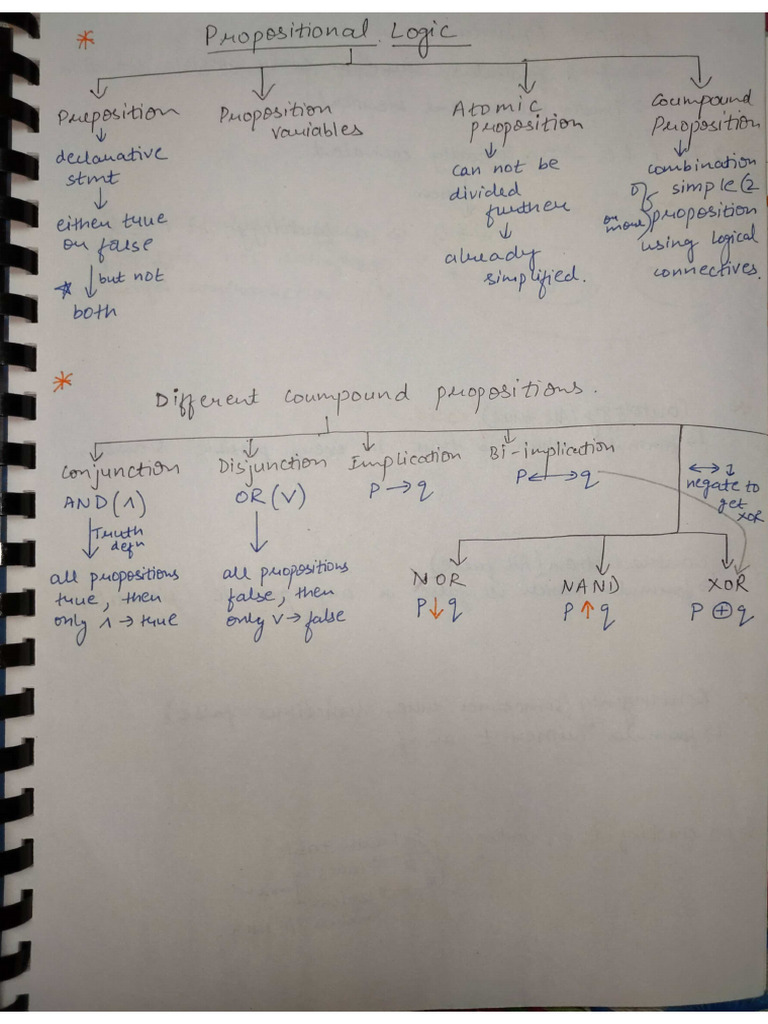 * Propositional Logic
Preposition
declarative
stmt
either true
or false
* but not
both
Proposition
variables
Atomic
proposition
can not be
divided
further
already
simplified.
Coumpound
Proposition
combination
of simple (2
or more) proposition
using logical
connectives.
* Different Coumpound propositions.
Conjunction
AND (∧)
Truth
defn
all propositions
true, then
only ∧ → true
Disjunction
OR (∨)
all propositions
false, then
only ∨ → false
Implication
P → q
Bi-implication
P ↔ q
↔ I
negate to
get
XOR
NOR
P ↓ q
NAND
P ↑ q
XOR
P ⊕ q